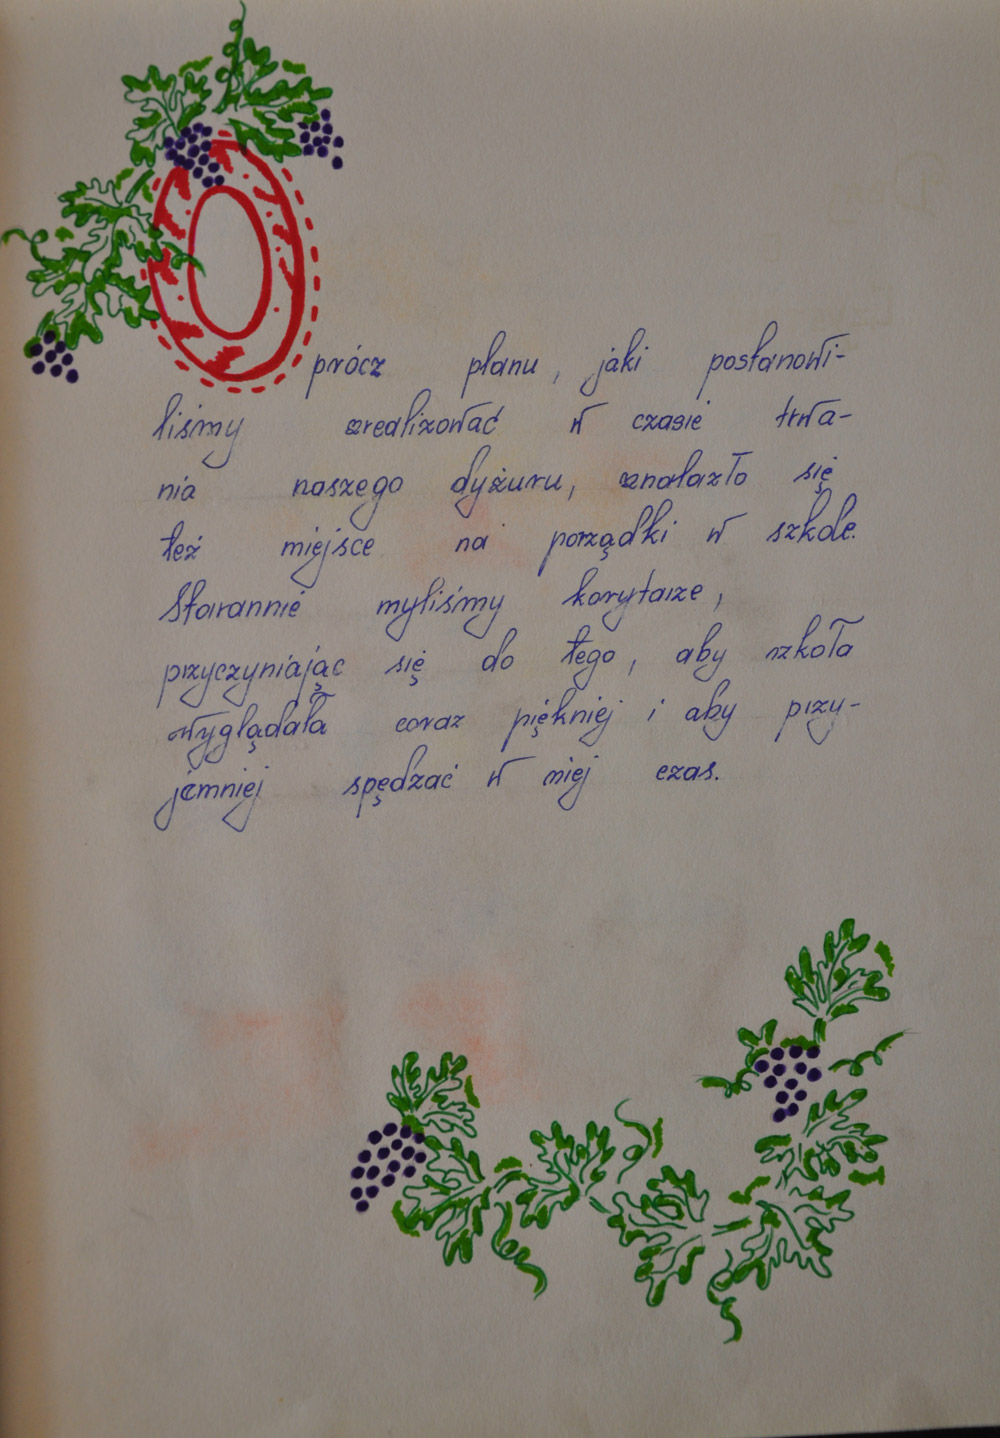 Oprócz planu, jaki postanowi-
liśmy zrealizować w czasie trwa-
nia naszego dyżuru, znalazło się
też miejsce na porządki w szkole.
Starannie myliśmy korytarze,
przyczyniając się do tego, aby szkoła
wyglądała coraz piękniej i aby przy-
jemniej spędzać w niej czas.